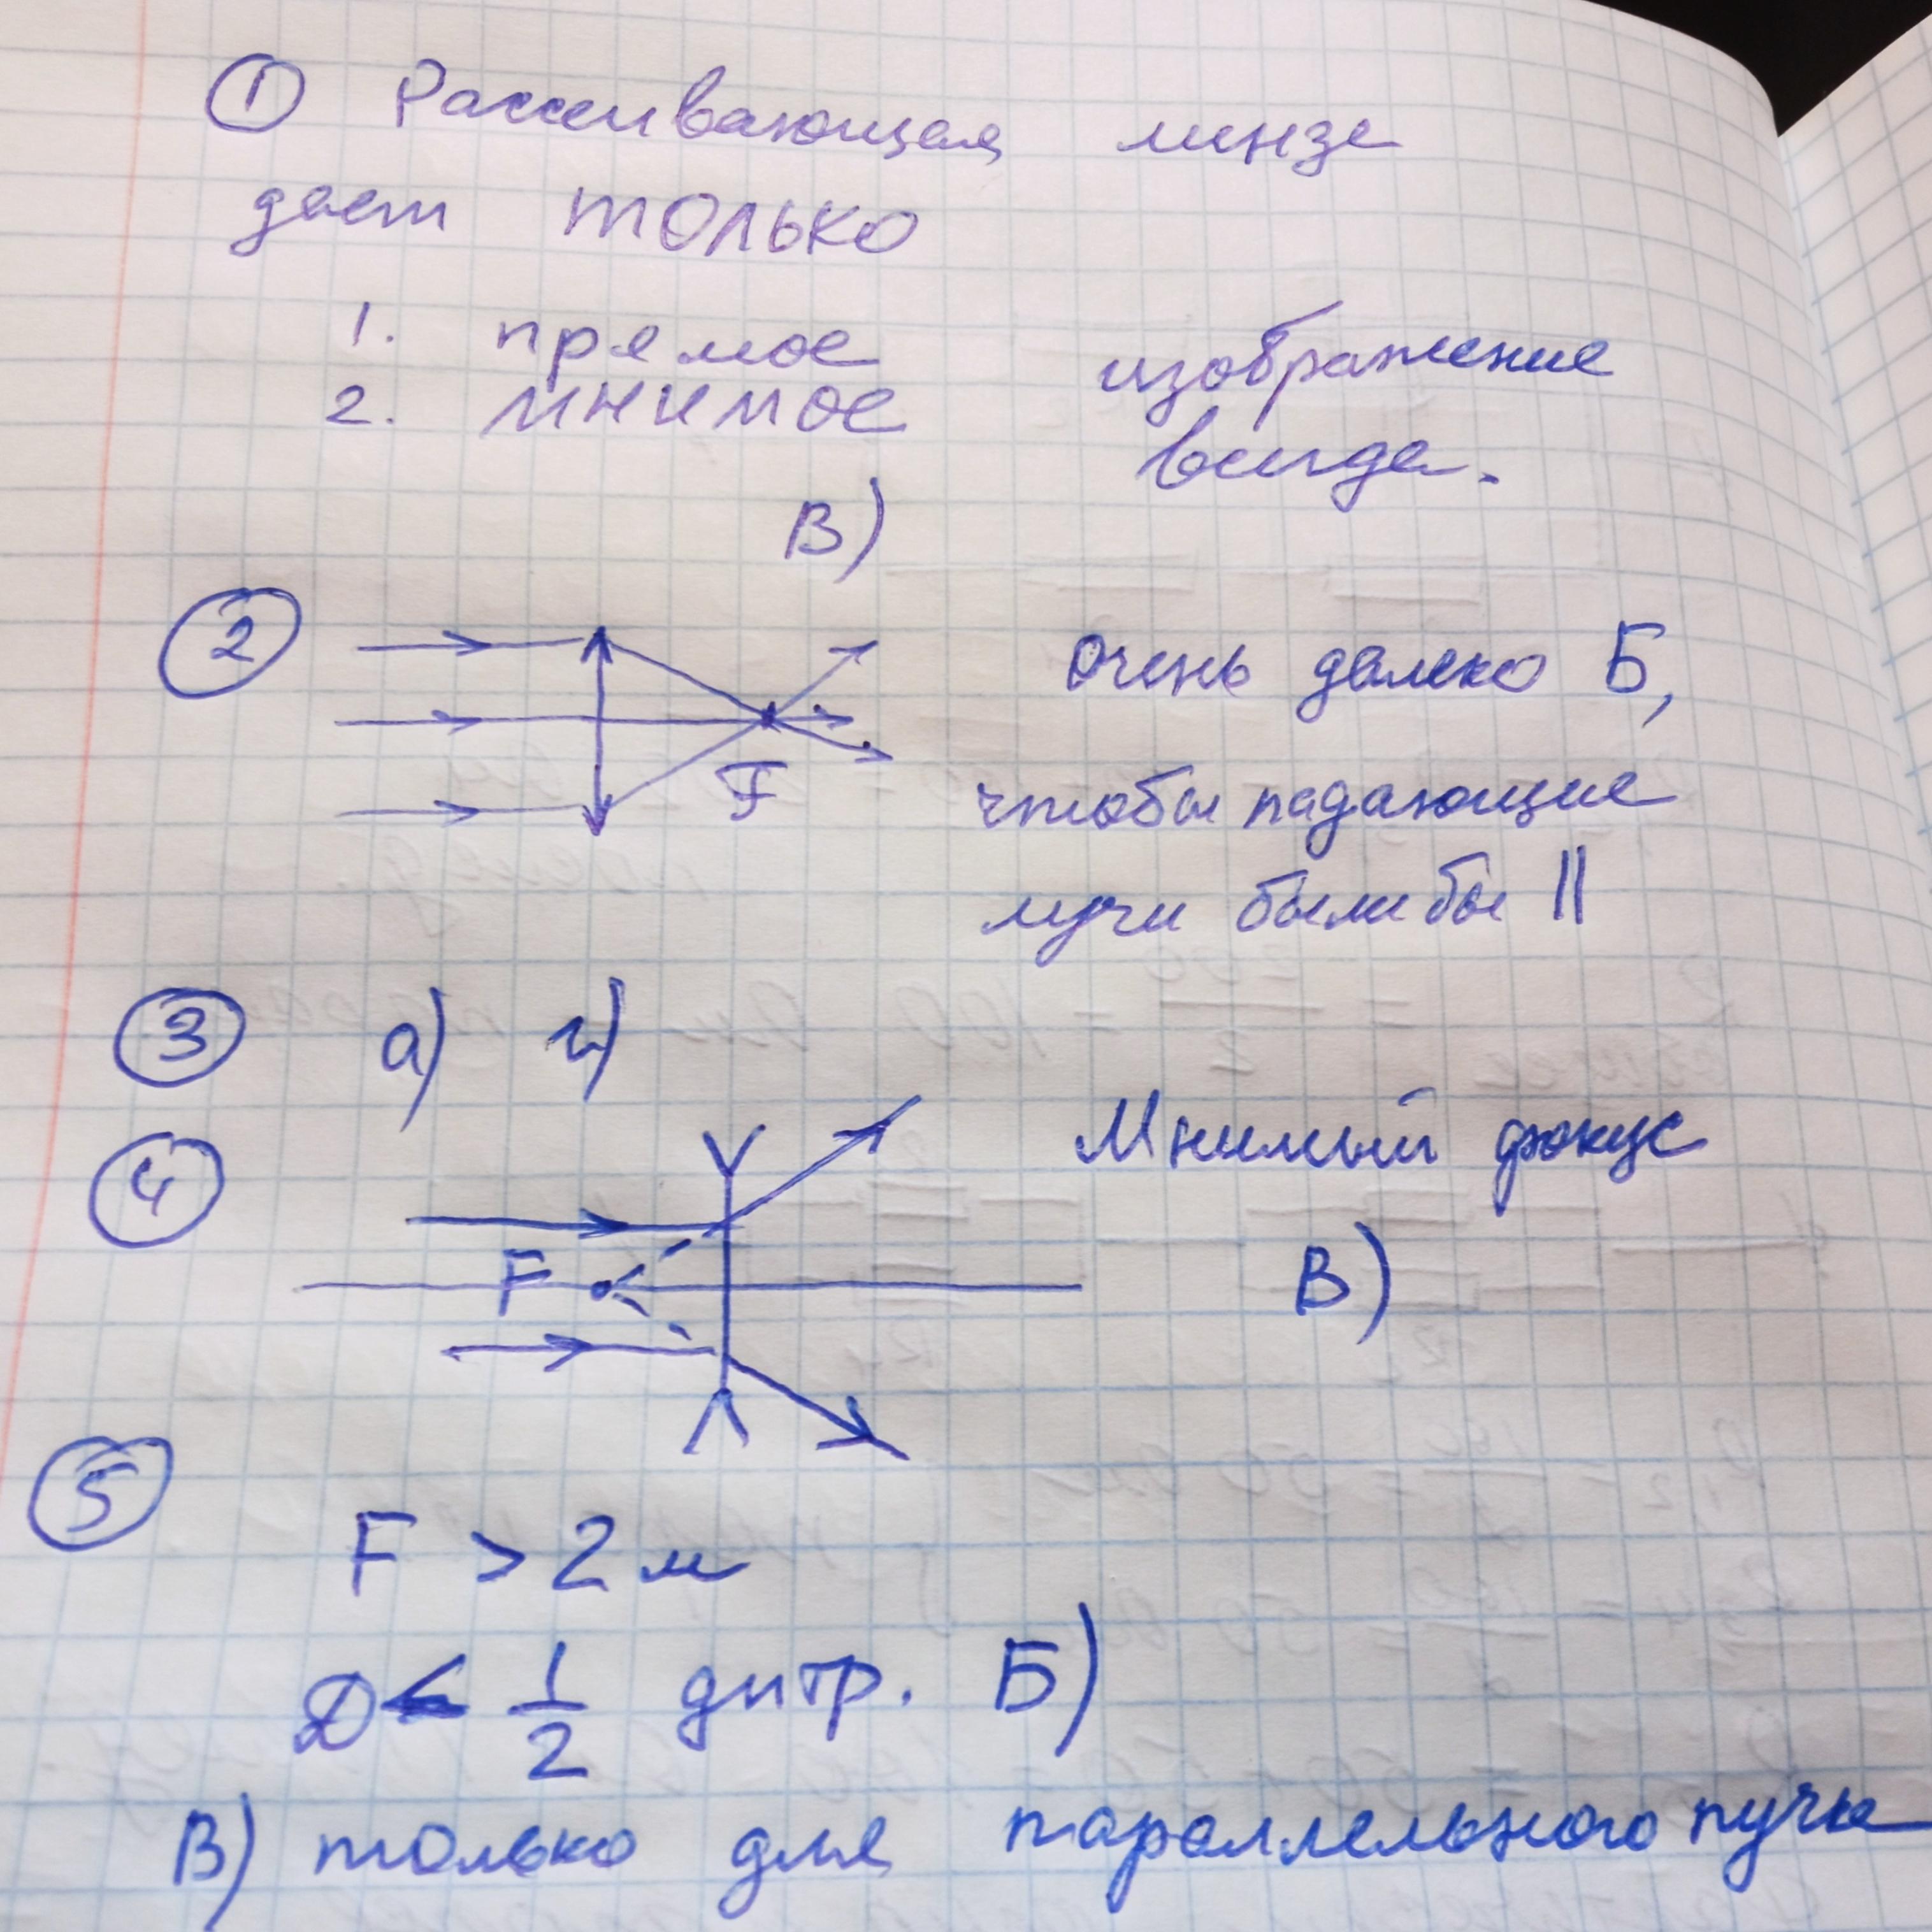 ① Рассеивающая линза
дает только
1. прямое изображение
2. мнимое всегда.
В)
② F очень далеко Б,
чтобы падающие
лучи были бы ||
③ а) г)
④ Мнимый фокус
F В)
⑤
F > 2 м
D < 1/2 дптр. Б)
В) только для параллельного пучка